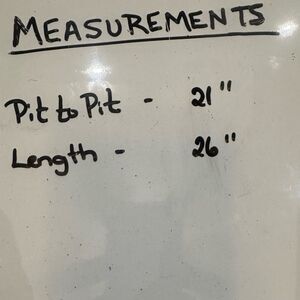 MEASUREMENTS
Pit to Pit - 21"
Length - 26"